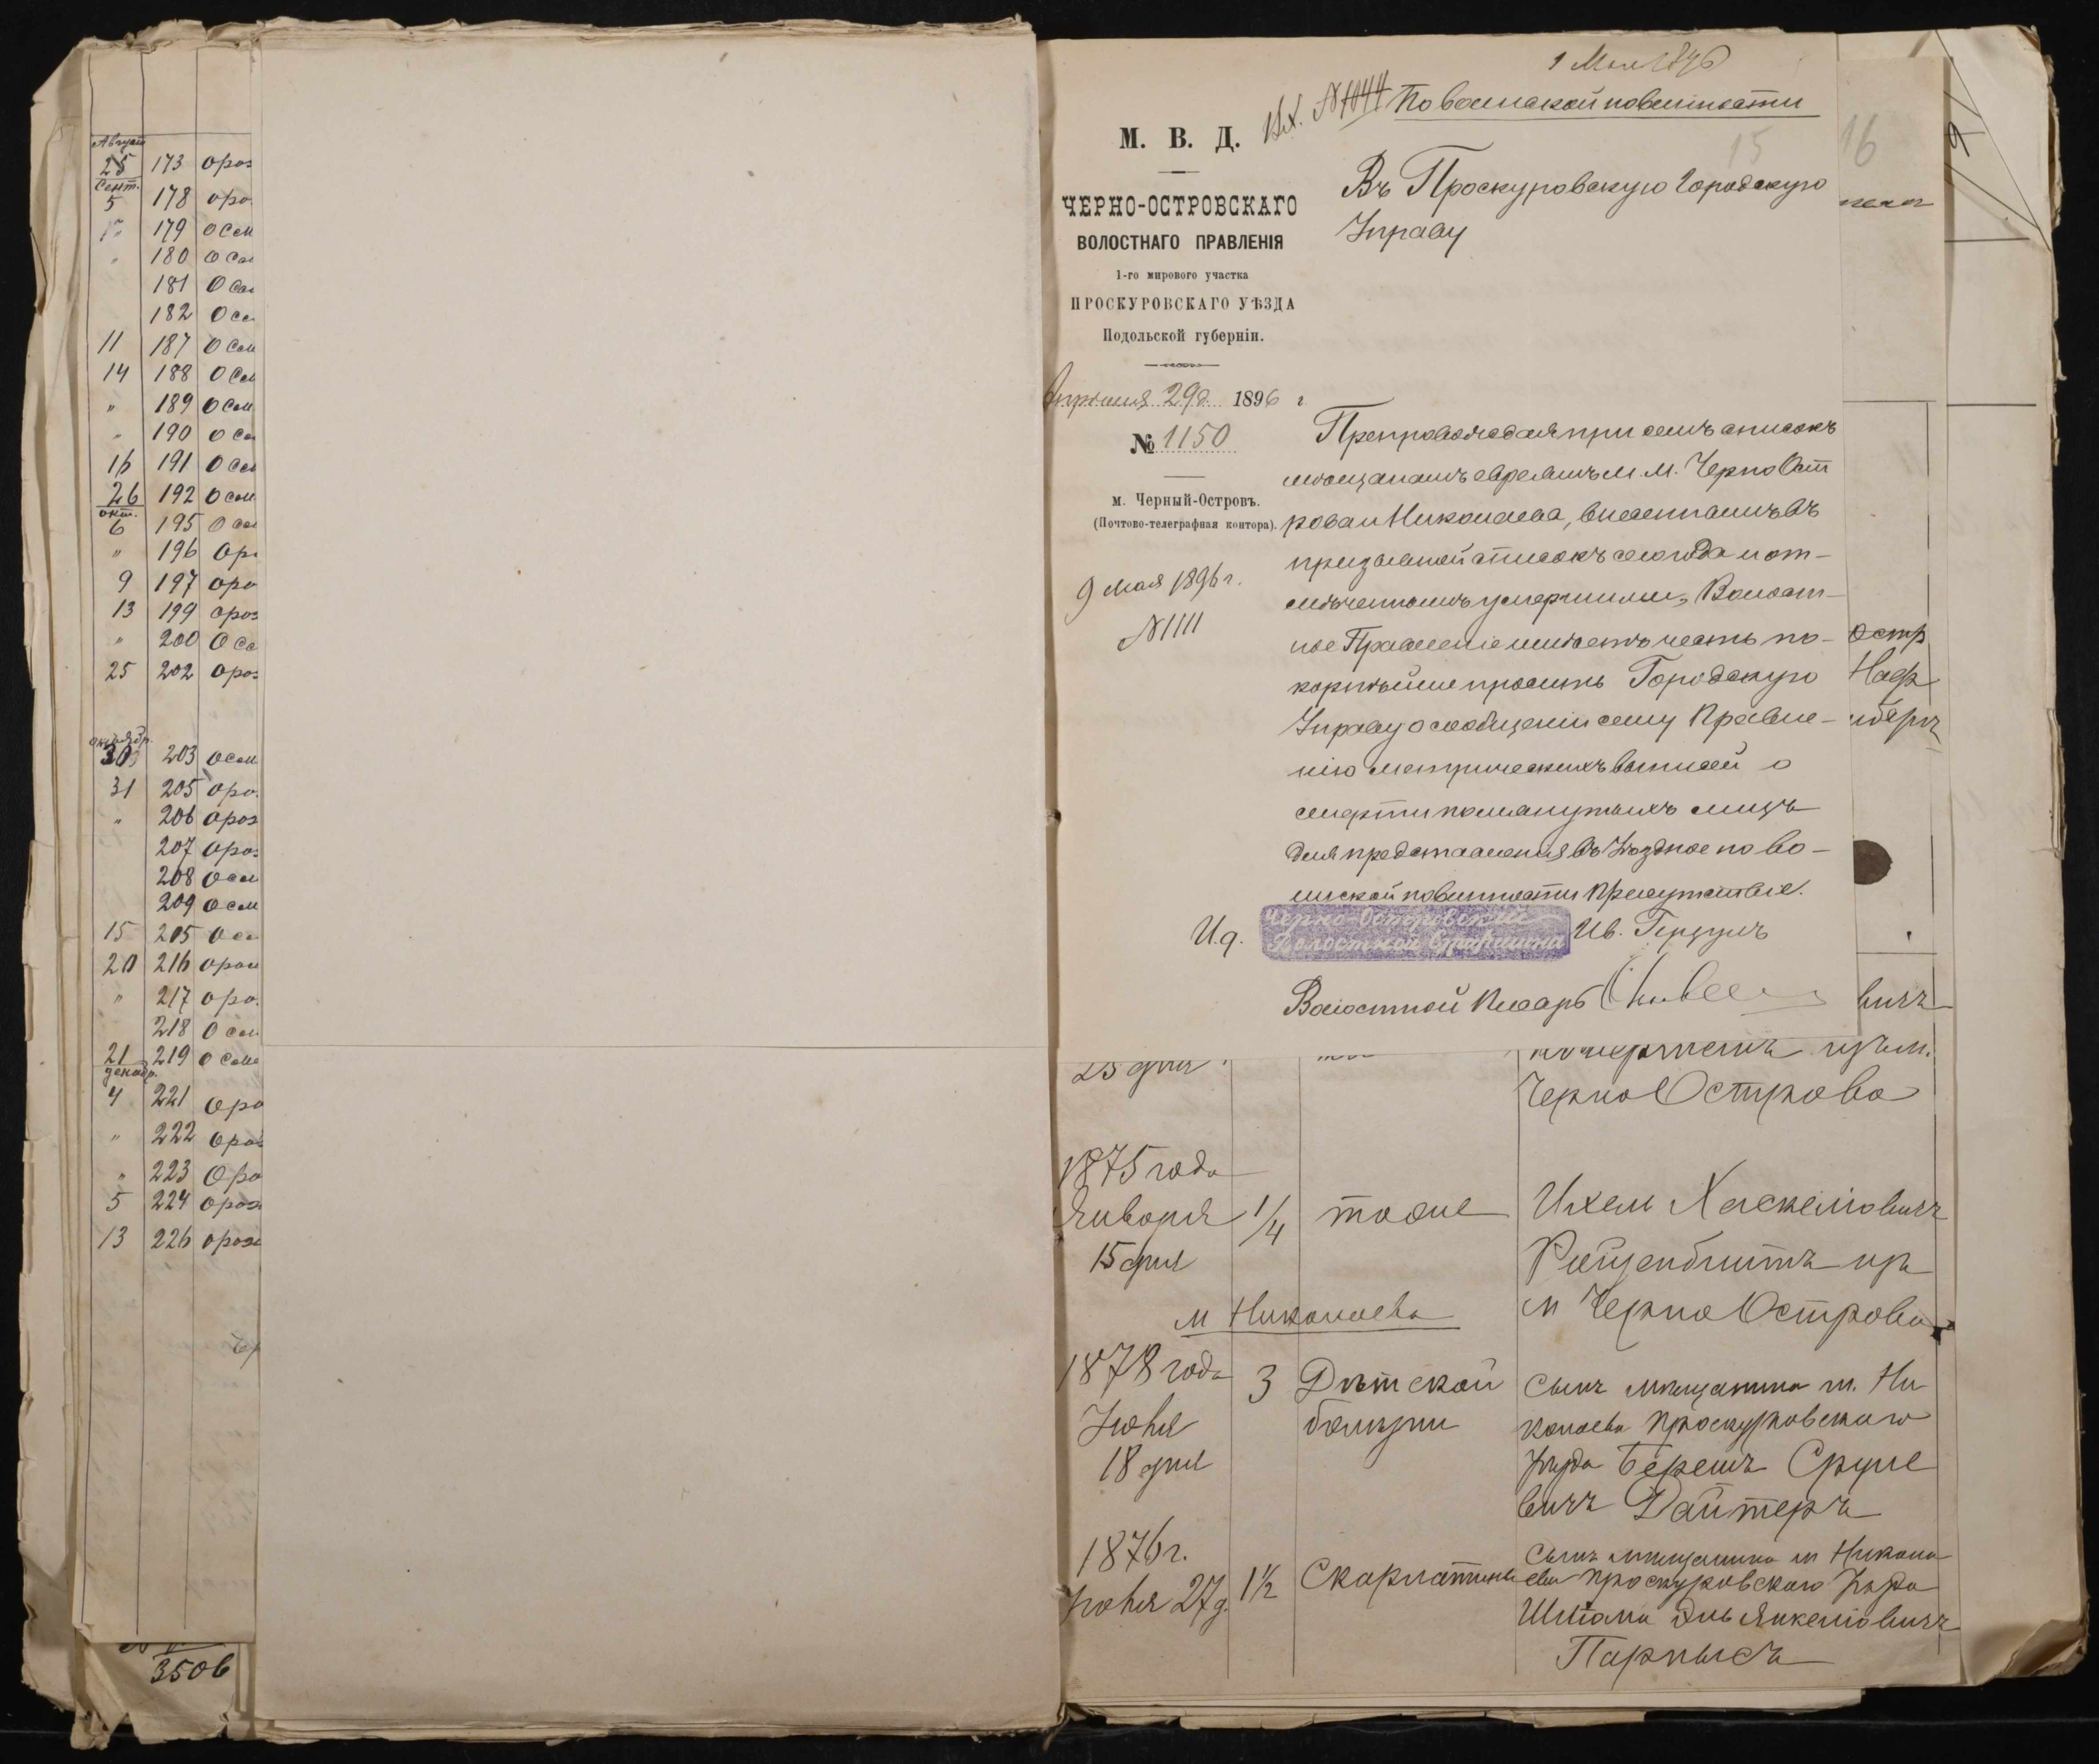 Августа
25 173 О рож
Сент.
5 178 О ро
179 О См
" 180 О См
181 О См
182 О См
11 187 О См
14 188 О См
" 189 О См
" 190 О См
16 191 О См
26 192 О См
окт.
6 195 О См
" 196 О р
9 197 О ро
13 199 О рож
" 200 О См
25 202 О рож
октябр.
30 203 О См
31 205 О ро
" 206 О рож
207 О рож
208 О См
209 О См
15 215 О См
20 216 О рож
" 217 О ро
218 О См
21 219 О См
декабр.
4 221 О ро
" 222 О рож
" 223 О ро
5 224 О рож
13 226 О рож
3506
1 Мая 1896
Вх. №1044 По воинской повинности
15
16
М. В. Д.
ЧЕРНО-ОСТРОВСКАГО
ВОЛОСТНАГО ПРАВЛЕНІЯ
1-го мирового участка
ПРОСКУРОВСКАГО УѢЗДА
Подольской губерніи.
Апрѣля 29 д. 1896 г
№ 1150
м. Черный-Островъ.
(Почтово-телеграфная контора).
9 мая 1896 г.
№1111
Въ Проскуровскую Городскую
Управу
Препровождая при семъ списокъ
мѣщанамъ евреямъ м. м. Черно Ост
рова и Николаева, внесеннымъ въ
призывной списокъ сего года и от-
мѣченнымъ умершими, Волост-
ное Правленіе имѣетъ честь по-
корнѣйше просить Городскую
Управу о сообщеніи сему Правле-
нію метрическихъ выписей о
смерти помянутыхъ лицъ
для представленія въ Уѣздное по во-
инской повинности Присутствіе.
И.д. Черно-Островскій
Волостной Старшина Ив.
Волостной Писарь
Остр
Наф
вичъ
25 дня
изъ м.
Черно Острова
1875 года
Января 1/4 тоже Ихель Хаскеліовичъ
15 дня изъ
м Черно Острова
м Николаева
1878 года 3 Дѣтской Сынъ мѣщанина м. Ни
Іюня болѣзни колаева Проскуровскаго
18 дня уѣзда Берешъ Сруле
вичъ Дайтеръ
1876 г. Сынъ мѣщанина м Никола
Іюня 27 д. 1½ Скарлатины ева Проскуровскаго уѣзда
Шліома Янкеліовичъ
Парнысъ